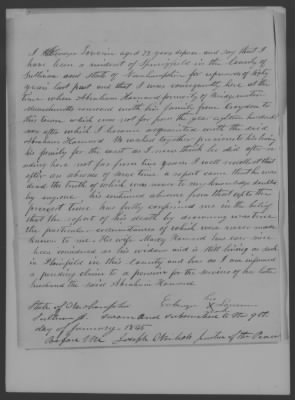 I Ebenezer aged 72 years depose and say that I
have been a resident of Springfield in the County of
Sullivan and State of Newhampshire for upwards of sixty
years last past and that I was consequently here at the
time when Abraham Hayward formerly of Bridgewater
Massachusetts removed with his family from Croydon to
this town which was not far from the year eighteen hundred
soon after which I became acquainted with the said
Abraham Hayward. We worked together previous to his leaving
his family for the west as I now think he did after re-
siding here not far from two years. I well recollect that
after an absence of some time a report came that he was
dead the truth of which was never to my knowledge doubted
by anyone his continued absence from that age to the
present time has fully confirmed me in the belief
that the report of his death by drowning was true
the particular circumstances of which were never made
known to me. His wife Mary Hayward has ever since
been considered as his widow and is still living as such
in Plainfield in this County and has as I am informed
a pending claim to a pension for the services of her late
husband the said Abraham Hayward
State of Newhampshire his
Sullivan ss. Sworn and subscribed to this 9th
day of January 1845
Before Me Joseph Nichols Justice of the Peace